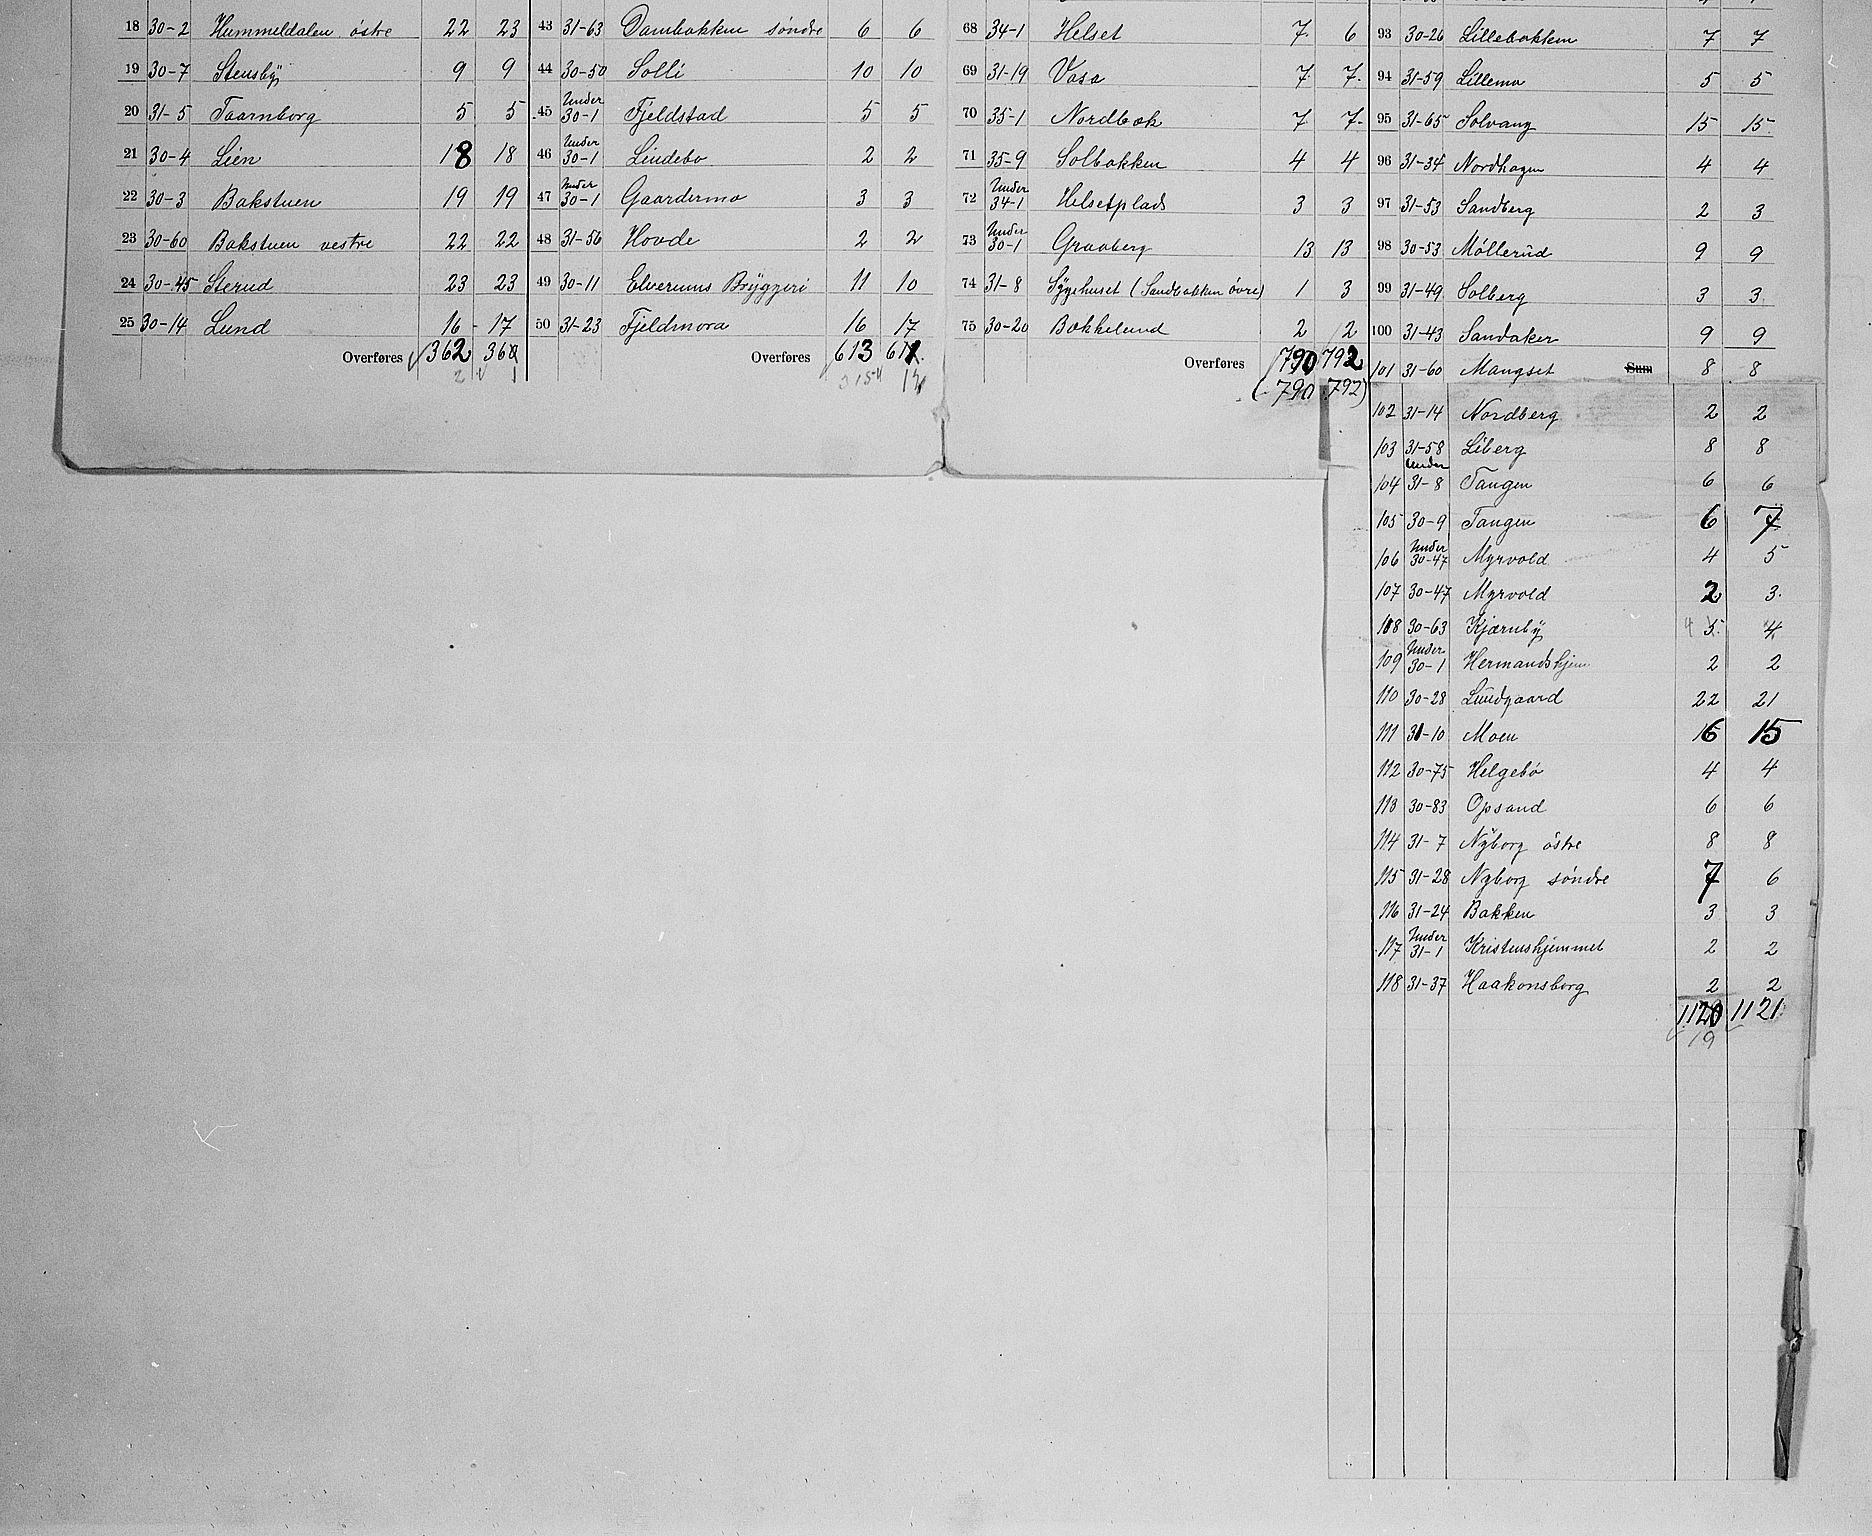 18 30-2 Hummeldalen östre 22 23
19 30-7 Stensby 9 9
20 31-5 Taarnborg 5 5
21 30-4 Lien 18 18
22 30-3 Bakstuen 19 19
23 30-60 Bakstuen vestre 22 22
24 30-45 Sterud 23 23
25 30-14 Lund 16 17
Overføres 362 360
2 1
43 31-63 Dambakken söndre 6 6
44 30-50 Solli 10 10
45 Under 30-1 Fjeldstad 5 5
46 Under 30-1 Lindebo 2 2
47 Under 30-1 Gaardermo 3 3
48 31-56 Hovde 2 2
49 30-11 Elverums Bryggeri 11 10
50 31-23 Fjeldmora 16 17
Overføres 613 611
68 34-1 Helset 7 6
69 31-19 Vasa 7 7
70 35-1 Nordbæk 7 7
71 35-9 Solbakken 4 4
72 Under 34-1 Helsetplads 3 3
73 Under 30-1 Graaberg 13 13
74 31-8 Sygehuset (Sandbakken övre) 1 3
75 30-20 Bækkelund 2 2
Overføres 790 792
(790 792)
93 30-26 Lillebakken 7 7
94 31-59 Lillemo 5 5
95 31-65 Solvang 15 15
96 31-34 Nordhagen 4 4
97 31-53 Sandberg 2 3
98 30-53 Möllerud 9 9
99 31-49 Solberg 3 3
100 31-43 Sandaker 9 9
101 31-60 Mangset Sum 8 8
102 31-14 Nordberg 2 2
103 31-58 Liberg 8 8
104 Under 31-8 Tangen 6 6
105 30-9 Tangen 6 7
106 Under 30-47 Myrvold 4 5
107 30-47 Myrvold 2 3
108 30-63 Kjærnby 4 5 4
109 Under 30-1 Hermandshjem 2 2
110 30-28 Lundgaard 22 21
111 31-10 Moen 16 15
112 30-75 Helgebö 4 4
113 30-83 Opsand 6 6
114 31-7 Nyborg östre 8 8
115 31-28 Nyborg söndre 7 6
116 31-24 Bakken 3 3
117 Under 31-1 Kristenshjemmet 2 2
118 31-37 Haakonsborg 2 2
1120 1121
19